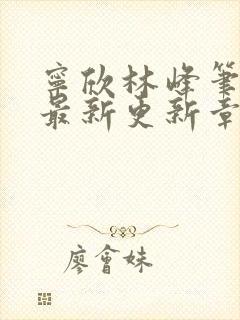 寧欣林峰筆
最新更新章
廖會妹